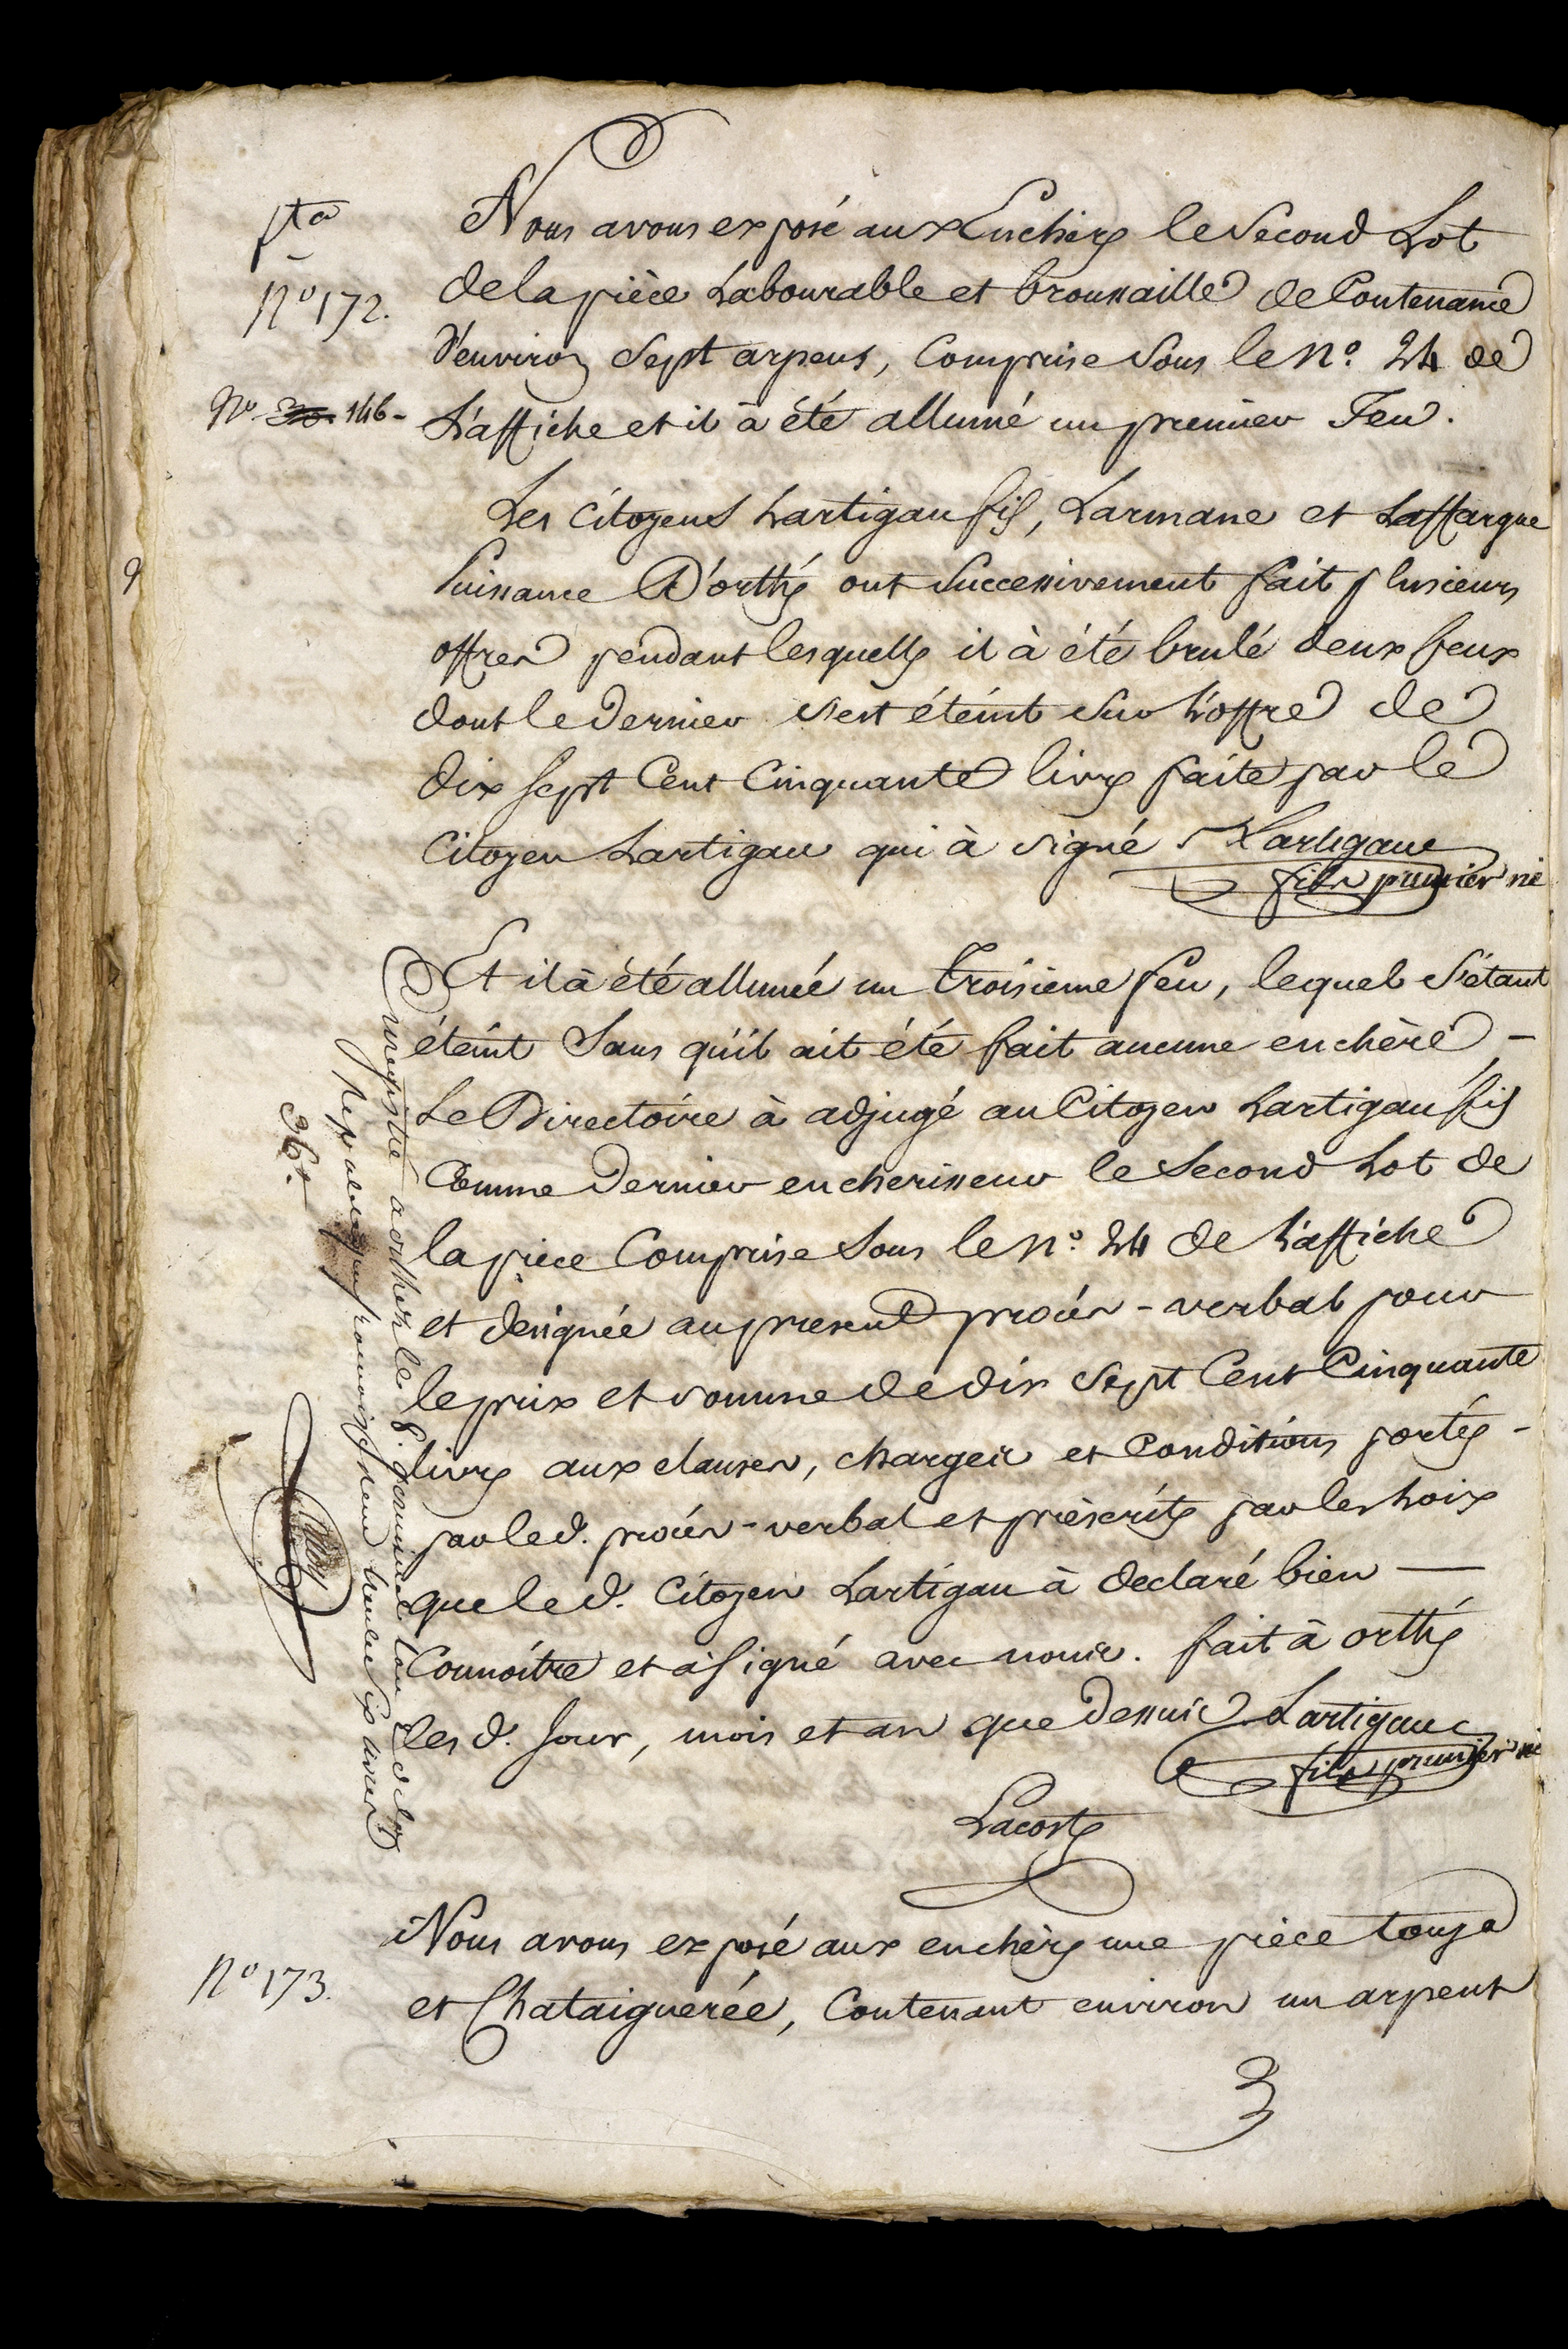 pta
N° 172.
N° 146 -
Nous avons exposé aux Encheres le Second Lot
de la pièce Labourable et broussaille de Contenance
d'environ Sept arpens, Comprise Sous le N°. 24 de
L'affiche et il à été allumé un premier Feu.
Les Citoyens Lartigau fils, Larmane et Laffargue
Puissance D'orthés ont Successivement fait plusieurs
offres pendant lesquelles il à été brulé deux feux
dont le Dernier s'est éteint Sur L'offre de
dix sept Cent Cinquante livres faite par le
Citoyen Lartigau qui à signé Lartigaue
fils premier né
Et il à été allumé un troisieme feu, lequel S'étant
éteint Sans qu'il ait été fait aucune enchère -
Le Directoire à adjugé au Citoyen Lartigau fils
Comme Dernier encherisseur le Second Lot de
la piece Comprise Sous le n°. 24 de L'affiche
et designée au present procès-verbal pour
le prix et somme de dix Sept Cent Cinquante
livres aux clauses, charges et Conditions portés -
par led. procès-verbal et préscrits par les Loix
que led. Citoyen Lartigau à declaré bien —
Connoître et à signé avec nous. fait à orthés
les d. Jour, mois et an que Dessus Lartigaue
fils premier né
Lacoste
Enregistré a orthez le 8. germinal lan 2 de la
Rep. trente six livres
36#
N° 173.
Nous avons exposé aux enchères une pièce touya
et Chataignerée, Contenant environ un arpent